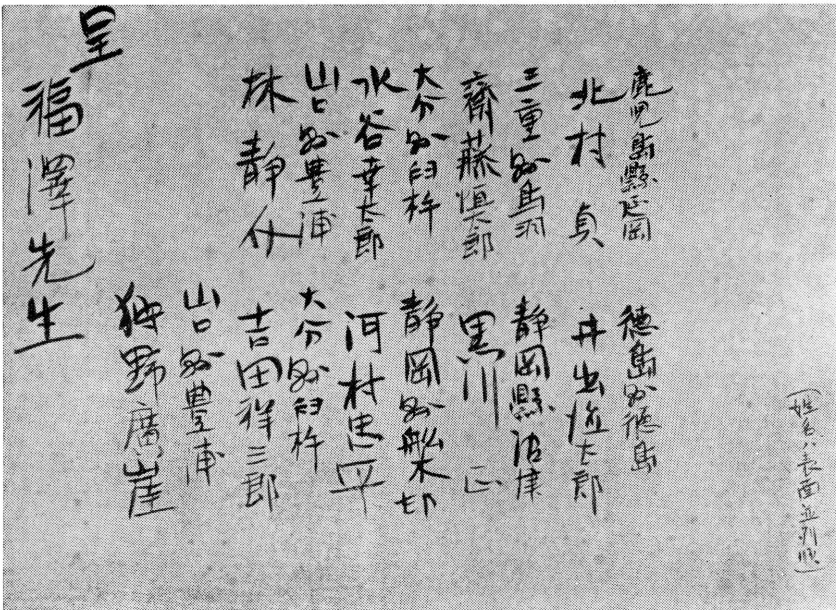 (姓名ハ表面並列順)
鹿児島縣延岡
北村 貞
三重縣鳥羽
齋藤恒太郎
大分縣臼杵
水谷幸太郎
山口縣豊浦
林静介
徳島縣徳島
静岡縣沼津
黒川 正
河村忠平
大分縣臼杵
吉田祥三郎
山口縣豊浦
狎野廣崖
呈
福澤先生